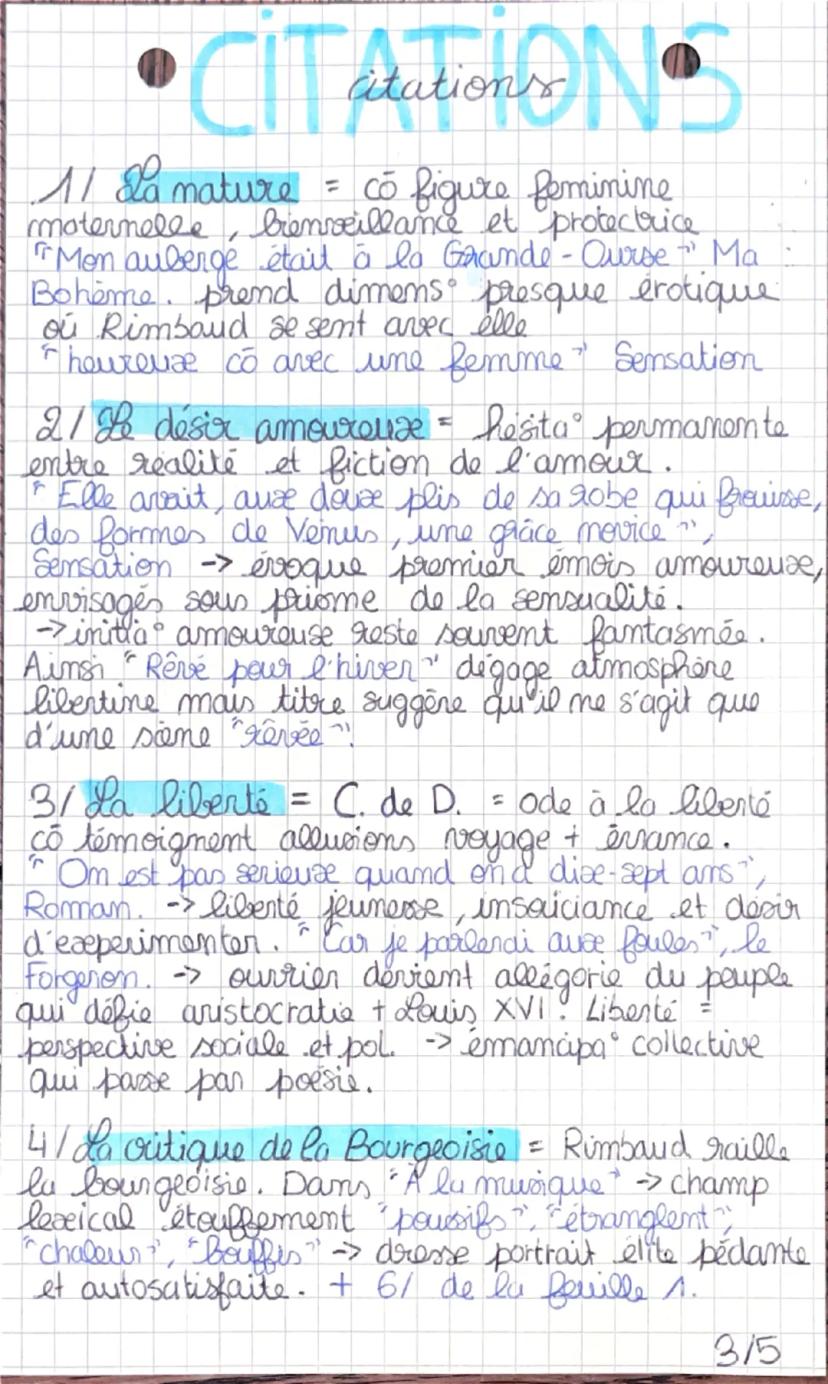 CiTATiONS
citations
1/ La nature = cō figure feminine
maternelle, bienveillance et protectrice
"Mon auberge était à la Grande-Ourse" Ma
Bohème. prend dimens° presque érotique
où Rimbaud se sent avec elle
"heureux cō avec une femme" Sensation
2/ Le désir amoureux = hésita° permanente
entre réalité et fiction de l'amour.
"Elle avait, aux doux plis de sa robe qui froisse,
des formes de Vénus, une grâce novice",
Sensation -> évoque premier émois amoureux,
envisagés sous prisme de la sensualité.
-> initia° amoureuse reste souvent fantasmée.
Ainsi "Rêvé pour l'hiver" dégage atmosphère
libertine mais titre suggère qu'il ne s'agit que
d'une scène "rêvée".
3/ La liberté = C. de D. = ode à la liberté
cō témoignent allusions voyage + errance.
"On est pas serieux quand on a dix-sept ans",
Roman. -> liberté jeunesse, insouciance et désir
d'experimenter. "Car je parlerai aux foules", le
Forgeron. -> ouvrier devient allégorie du peuple
qui défie aristocratie + Louis XVI. Liberté =
perspective sociale et pol. -> émancipa° collective
qui passe par poésie.
4/ La critique de la Bourgeoisie = Rimbaud raille
la bourgeoisie. Dans "À la musique" -> champ
lexical étouffement "poussifs", "étranglent",
"chaleur", "bouffis" -> dresse portrait élite pédante
et autosatisfaite. + 6/ de la feuille 1.
3/5